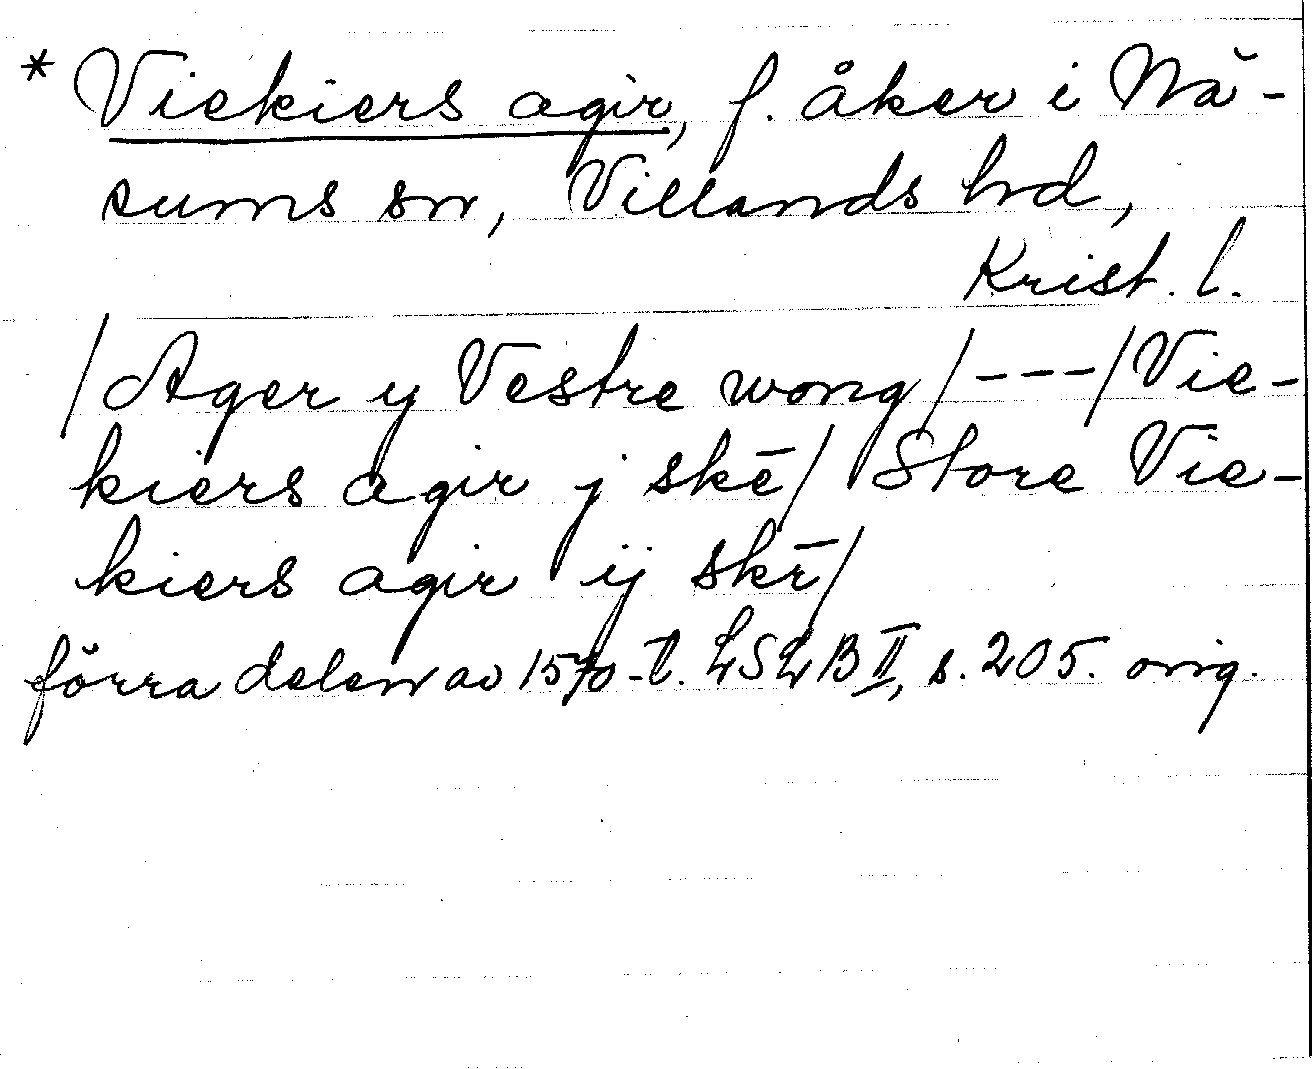 * Viekiers agir, f. åker i Nä-
sums sn, Villands hrd,
Krist. l.
/Ager y Vestre wong/---/Vie-
kiers agir j skē/ Store Vie-
kiers agir ij skē/
förra delen av 1570-t. LSLB II, s. 205. orig.